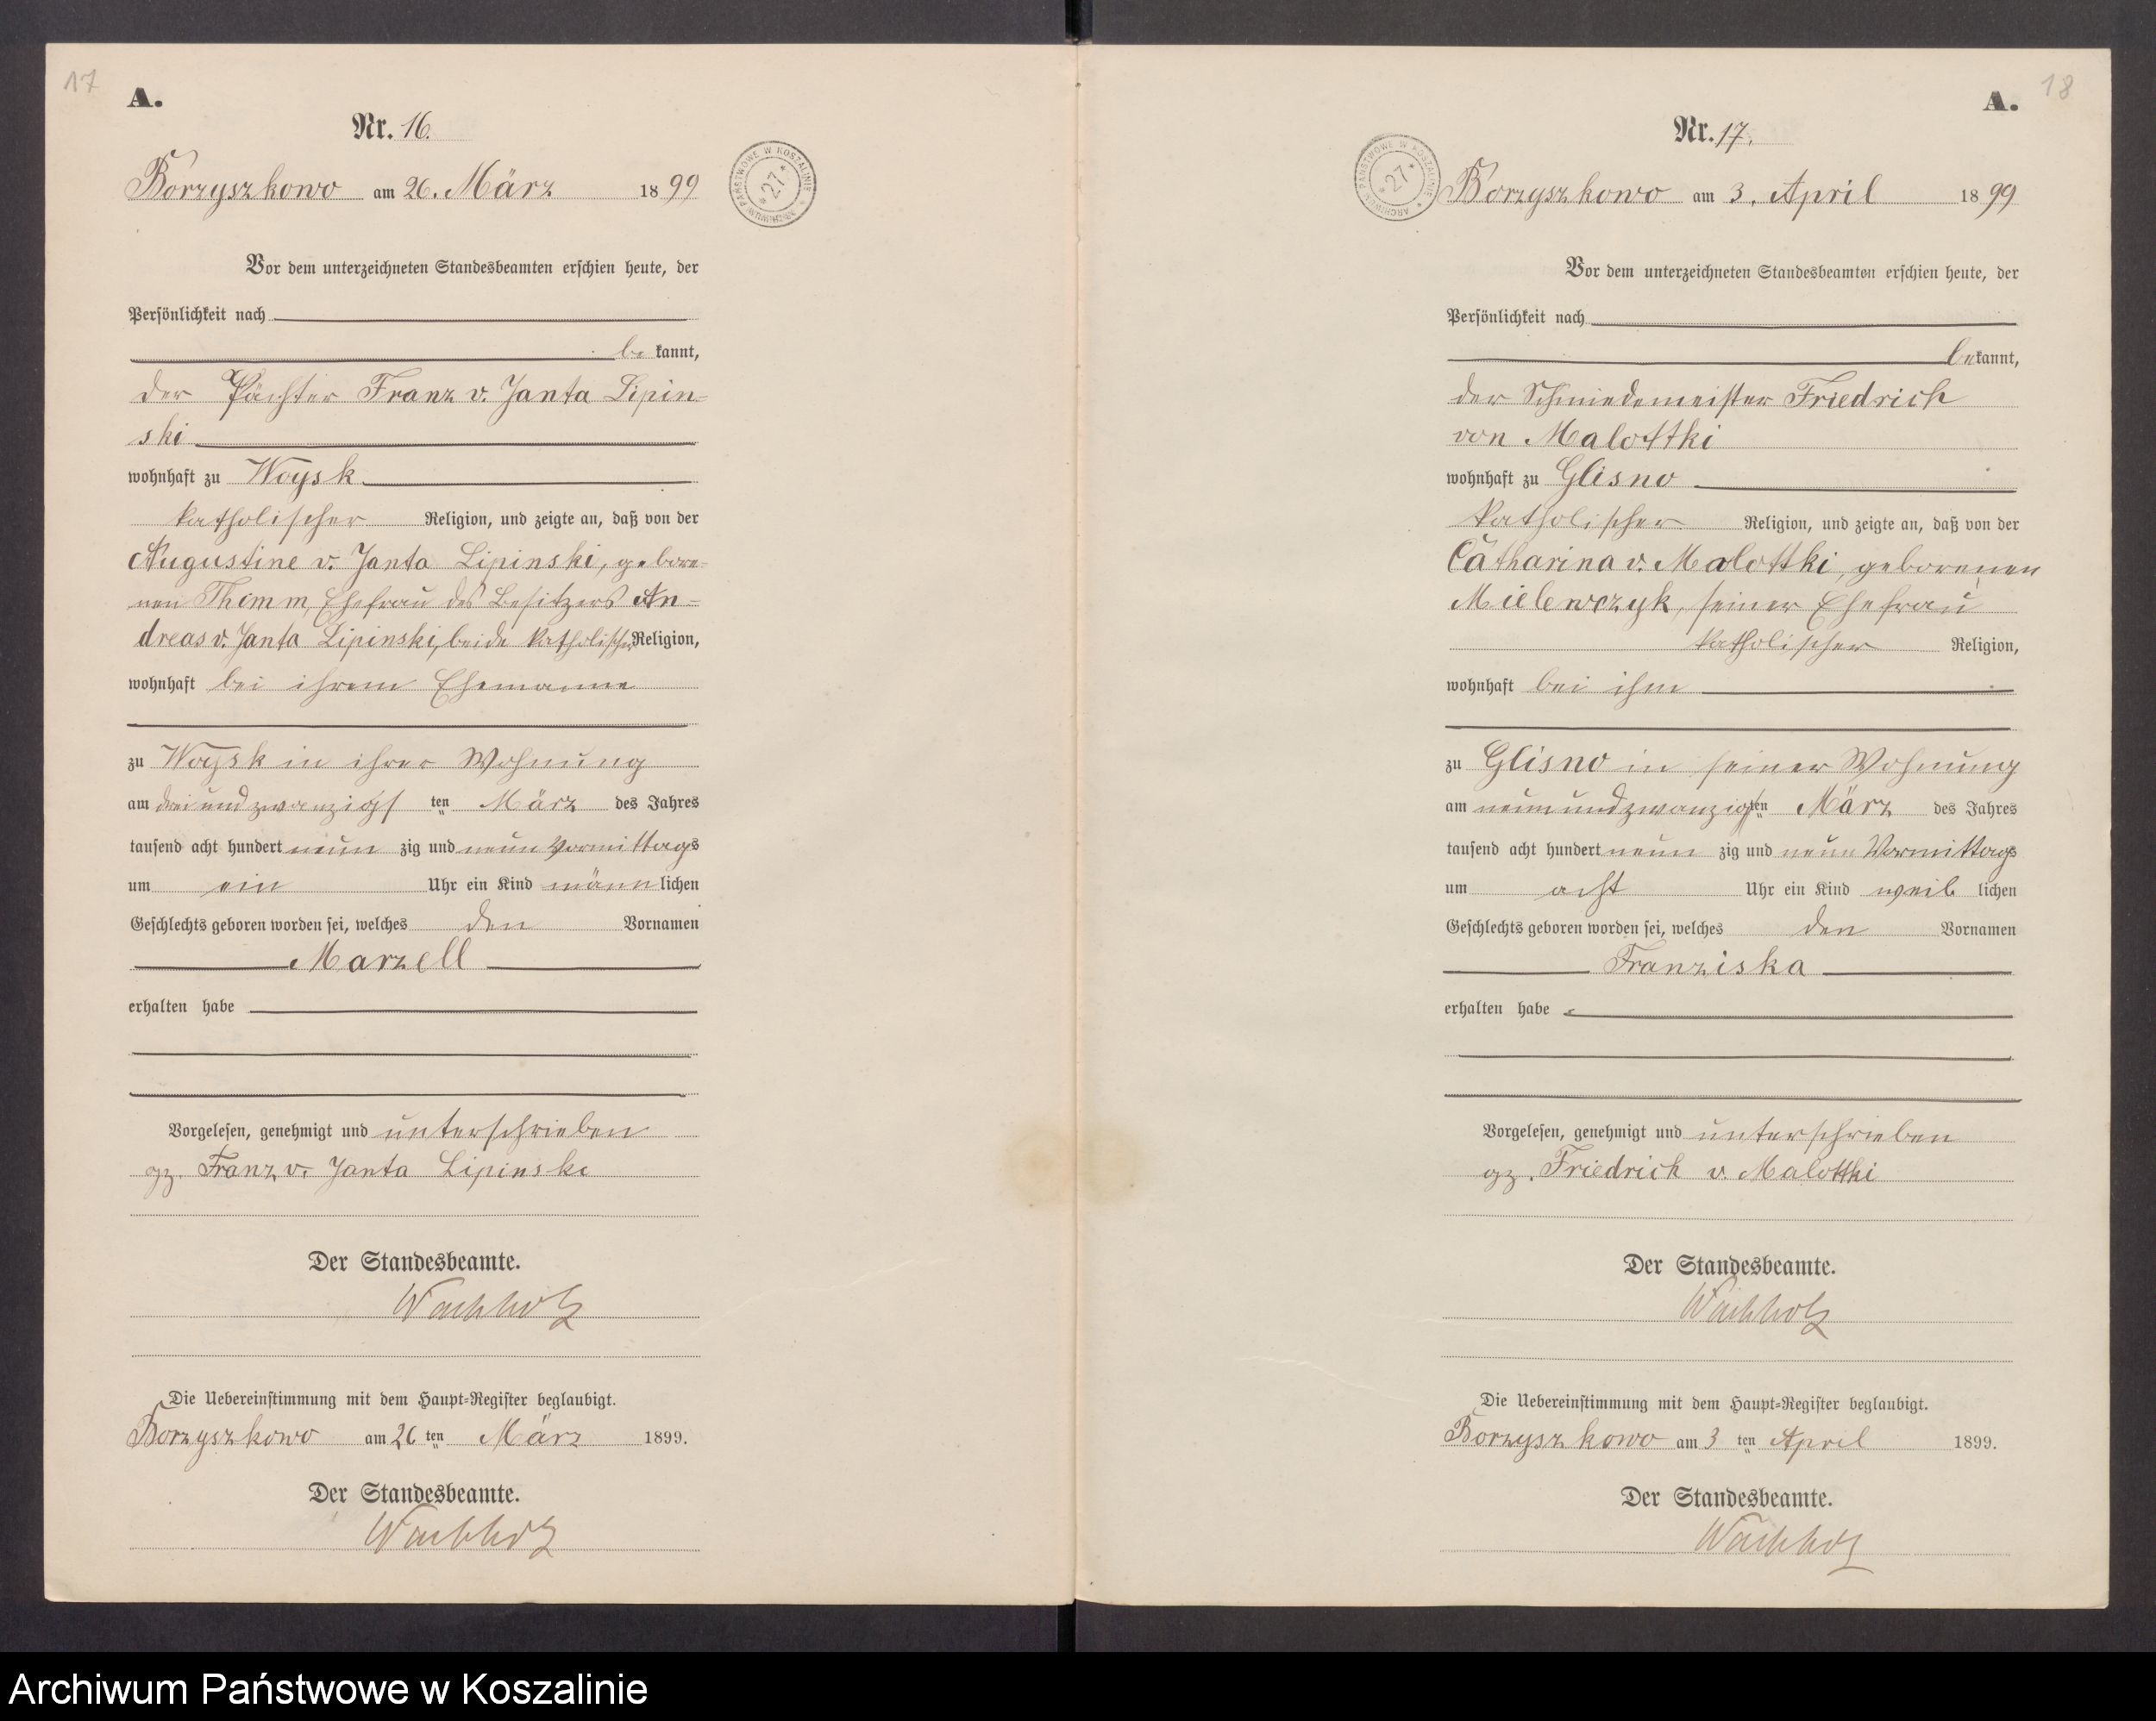 17
A.
Nr. 16.
Borzyszkowo am 26. März 1899
ARCHIWUM PAŃSTWOWE W KOSZALINIE * 27 *
Vor dem unterzeichneten Standesbeamten erschien heute, der
Persönlichkeit nach
be kannt,
der Pächter Franz v. Janta Lipin-
ski
wohnhaft zu Woysk
katholischer Religion, und zeigte an, daß von der
Augustine v. Janta Lipinski, gebore-
nen Themm, Ehefrau des Besitzers An-
dreas v. Janta Lipinski, beide katholischer Religion,
wohnhaft bei ihrem Ehemanne
zu Woysk in ihrer Wohnung
am dreiundzwanzigsten März des Jahres
tausend acht hundert neun zig und neun Vormittags
um ein Uhr ein Kind männlichen
Geschlechts geboren worden sei, welches den Vornamen
Marzell
erhalten habe
Vorgelesen, genehmigt und unterschrieben
gz. Franz v. Janta Lipinski
Der Standesbeamte.
Wachholz
Die Uebereinstimmung mit dem Haupt-Register beglaubigt.
Borzyszkowo am 26 ten März 1899.
Der Standesbeamte.
Wachholz
18
A.
Nr. 17.
ARCHIWUM PAŃSTWOWE W KOSZALINIE * 27 *
Borzyszkowo am 3. April 1899
Vor dem unterzeichneten Standesbeamten erschien heute, der
Persönlichkeit nach
bekannt,
der Schmiedemeister Friedrich
von Malottki
wohnhaft zu Glisno
katholischer Religion, und zeigte an, daß von der
Catharina v. Malottki, geborenen
Mielewczyk, seiner Ehefrau
katholischer Religion,
wohnhaft bei ihm
zu Glisno in seiner Wohnung
am neunundzwanzigsten März des Jahres
tausend acht hundert neun zig und neun Vormittags
um acht Uhr ein Kind weib lichen
Geschlechts geboren worden sei, welches den Vornamen
Franziska
erhalten habe
Vorgelesen, genehmigt und unterschrieben
gz. Friedrich v. Malottki
Der Standesbeamte.
Wachholz
Die Uebereinstimmung mit dem Haupt-Register beglaubigt.
Borzyszkowo am 3 ten April 1899.
Der Standesbeamte.
Wachholz
Archiwum Państwowe w Koszalinie